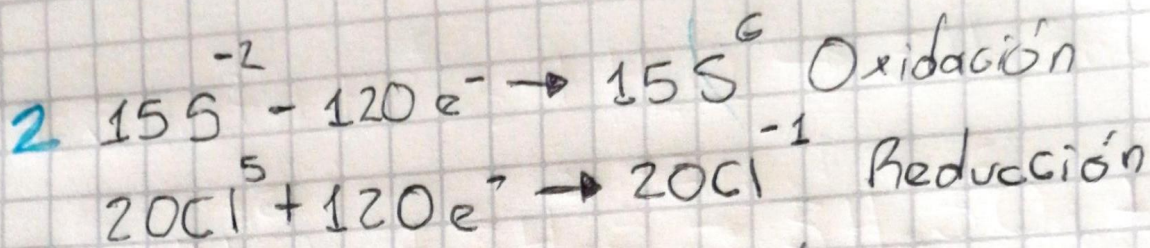 2 15S⁻² - 120e⁻ → 15S⁶ Oxidación
20Cl⁵ + 120e⁻ → 20Cl⁻¹ Reducción